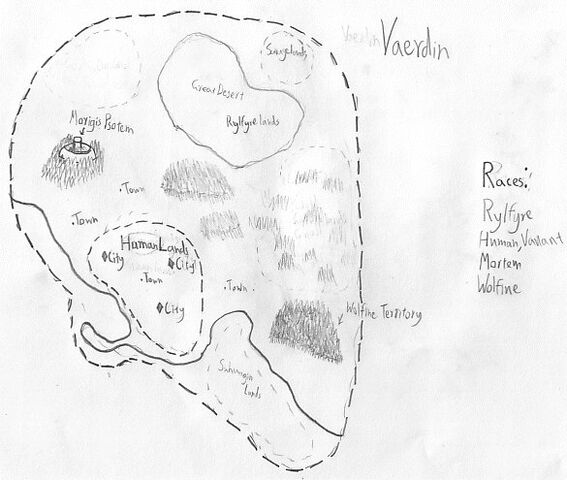 Vaerdin Vaerdin
Savagelands
Great Desert
Rylfyre lands
Morigis Psotem
Town
Town
Human Lands
City
City
Town
City
Town
Wolfine Territory
Lands
Races:
Rylfyre
Human, Variant
Mortem
Wolfine